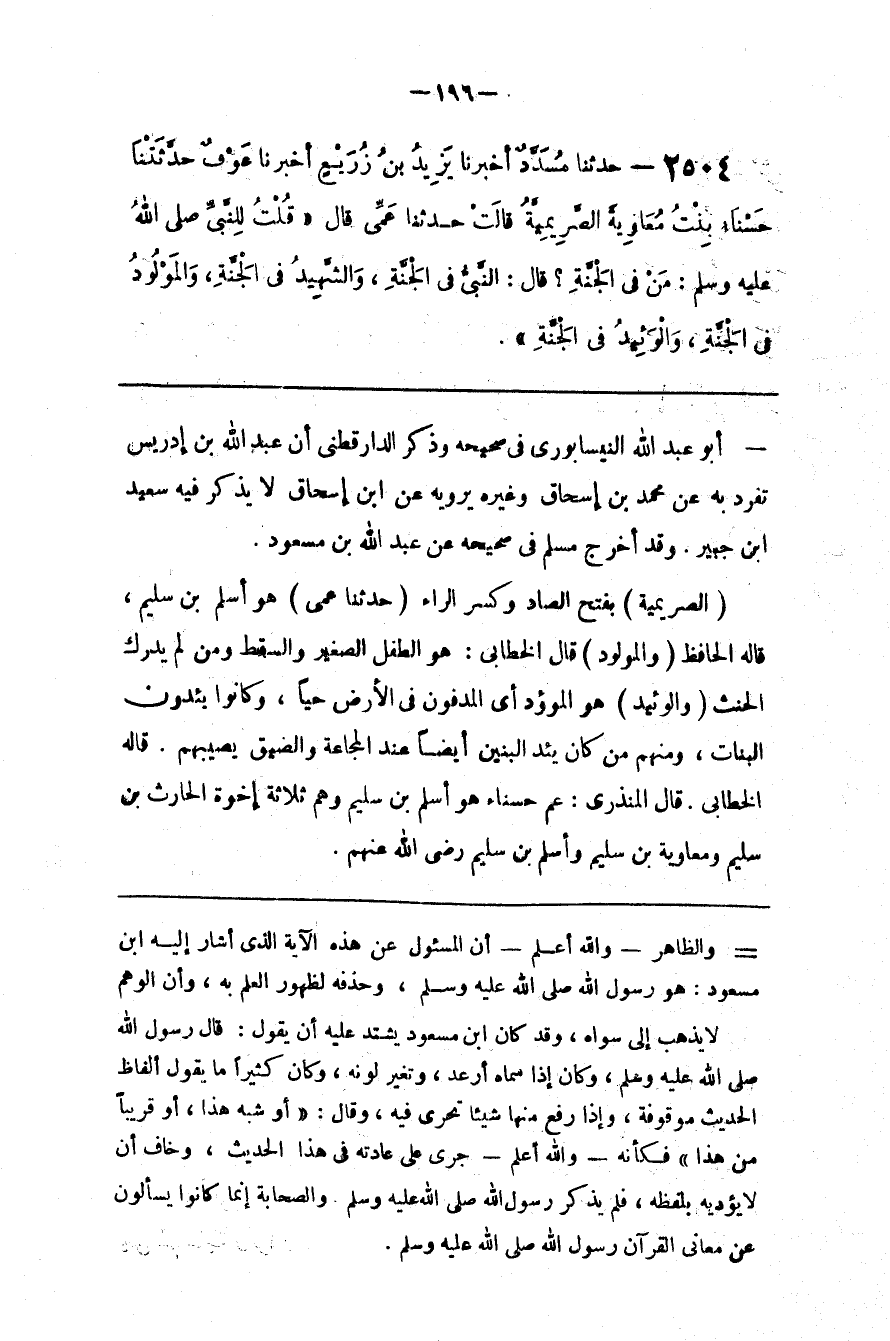 — ١٩٦ —
٢٥٠٤ — حدثنا مُسَدَّدٌ أخبرنا يَزِيدُ بنُ زُرَيْعٍ أخبرنا عَوْفٌ حدَّثَتْنَا
حَسْنَاءُ بِنْتُ مُعَاوِيةَ الصَّرِيمِيَّةُ قالَتْ حـدثنا عَمِّى قال « قُلْتُ لِلنَّبىِّ صلى اللهُ
عليه وسلم : مَنْ فى الْجَنَّةِ ؟ قال : النَّبىُّ فى الْجَنَّةِ ، وَالشَّهِيدُ فى الْجَنَّةِ ، وَالمَوْلُودُ
فى الْجَنَّةِ ، وَالْوَئِيدُ فى الْجَنَّةِ » .
— أبو عبد الله النيسابورى فى صحيحه وذكر الدارقطنى أن عبد الله بن إدريس
تفرد به عن محمد بن إسحاق وغيره يرويه عن ابن إسحاق لا يذكر فيه سعيد
ابن جبير . وقد أخرج مسلم فى صحيحه عن عبد الله بن مسعود .
( الصريمية ) بفتح الصاد وكسر الراء ( حدثنا عمى ) هو أسلم بن سليم ،
قاله الحافظ ( والمولود ) قال الخطابى : هو الطفل الصغير والسقط ومن لم يدرك
الحنث ( والوئيد ) هو الموؤد أى المدفون فى الأرض حياً ، وكانوا يئدون
البنات ، ومنهم من كان يئد البنين أيضـاً عند المجاعة والضيق يصيبهم . قاله
الخطابى . قال المنذرى : عم حسناء هو أسلم بن سليم وهم ثلاثة إخوة الحارث بن
سليم ومعاوية بن سليم وأسلم بن سليم رضى الله عنهم .
= والظاهر — والله أعـلم — أن المسئول عن هذه الآية الذى أشار إليـه ابن
مسعود : هو رسول الله صلى الله عليه وسـلم ، وحذفه لظهور العلم به ، وأن الوهم
لايذهب إلى سواه ، وقد كان ابن مسعود يشتد عليه أن يقول : قال رسول الله
صلى الله عليه وسلم ، وكان إذا سماه أرعد ، وتغير لونه ، وكان كثيراً ما يقول ألفاظ
الحديث موقوفة ، وإذا رفع منها شيئا تحرى فيه ، وقال : « أو شبه هذا ، أو قريباً
من هذا » فـكأنه — والله أعلم — جرى على عادته فى هذا الحديث ، وخاف أن
لايؤديه بلفظه ، فلم يذكر رسول الله صلى الله عليه وسلم . والصحابة إنما كانوا يسألون
عن معانى القرآن رسول الله صلى الله عليه وسلم .